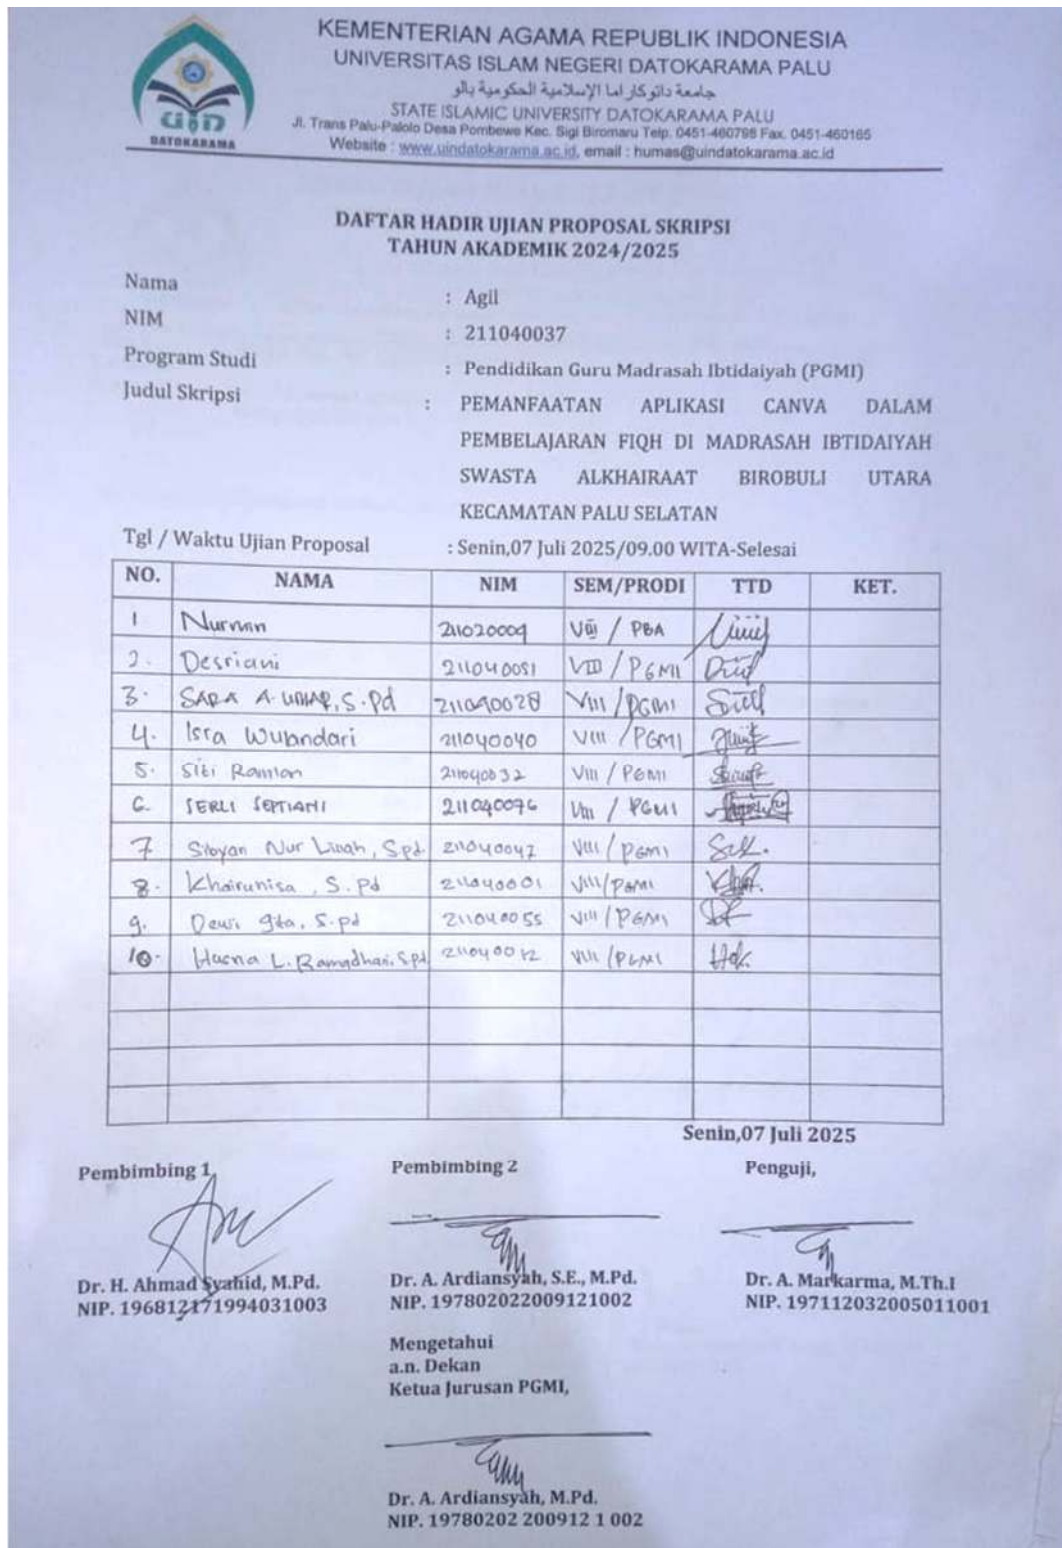 KEMENTERIAN AGAMA REPUBLIK INDONESIA
UNIVERSITAS ISLAM NEGERI DATOKARAMA PALU
جامعة داتوكاراما الإسلامية الحكومية بالو
STATE ISLAMIC UNIVERSITY DATOKARAMA PALU
Jl. Trans Palu-Palolo Desa Pombewe Kec. Sigi Biromaru Telp. 0451-460798 Fax. 0451-460165
Website : www.uindatokarama.ac.id, email : humas@uindatokarama.ac.id
uin
DATOKARAMA
DAFTAR HADIR UJIAN PROPOSAL SKRIPSI
TAHUN AKADEMIK 2024/2025
Nama : Agil
NIM : 211040037
Program Studi : Pendidikan Guru Madrasah Ibtidaiyah (PGMI)
Judul Skripsi : PEMANFAATAN APLIKASI CANVA DALAM
PEMBELAJARAN FIQH DI MADRASAH IBTIDAIYAH
SWASTA ALKHAIRAAT BIROBULI UTARA
KECAMATAN PALU SELATAN
Tgl / Waktu Ujian Proposal : Senin,07 Juli 2025/09.00 WITA-Selesai
NO. NAMA NIM SEM/PRODI TTD KET.
1 211020009 VIII / PBA
2. Desriani 211040051 VIII / PGMI
3. SARA A. UMAR, S.Pd 211040028 VIII / PGMI
4. Isra Wulandari 211040040 VIII / PGMI
5. Siti Ramlan 211040032 VIII / PGMI
6. SERLI SEPTIANI 211040076 VIII / PGMI
7 Nur S.pd 211040047 VIII / PGMI
8. Khairunisa, S.Pd 211040001 VIII/PGMI
9. Dewi Gita, S.pd 211040055 VIII / PGMI
10. Husna L. Ramadhani, S.pd 211040012 VIII / PGMI
Senin,07 Juli 2025
Pembimbing 1, Pembimbing 2 Penguji,
Dr. H. Ahmad Syahid, M.Pd. Dr. A. Ardiansyah, S.E., M.Pd. Dr. A. Markarma, M.Th.I
NIP. 196812171994031003 NIP. 197802022009121002 NIP. 197112032005011001
Mengetahui
a.n. Dekan
Ketua Jurusan PGMI,
Dr. A. Ardiansyah, M.Pd.
NIP. 19780202 200912 1 002